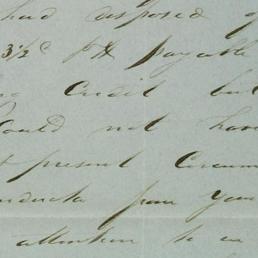 had disposed of
3½ c payable
Credit but
would not have
present Circum
from you
attention to